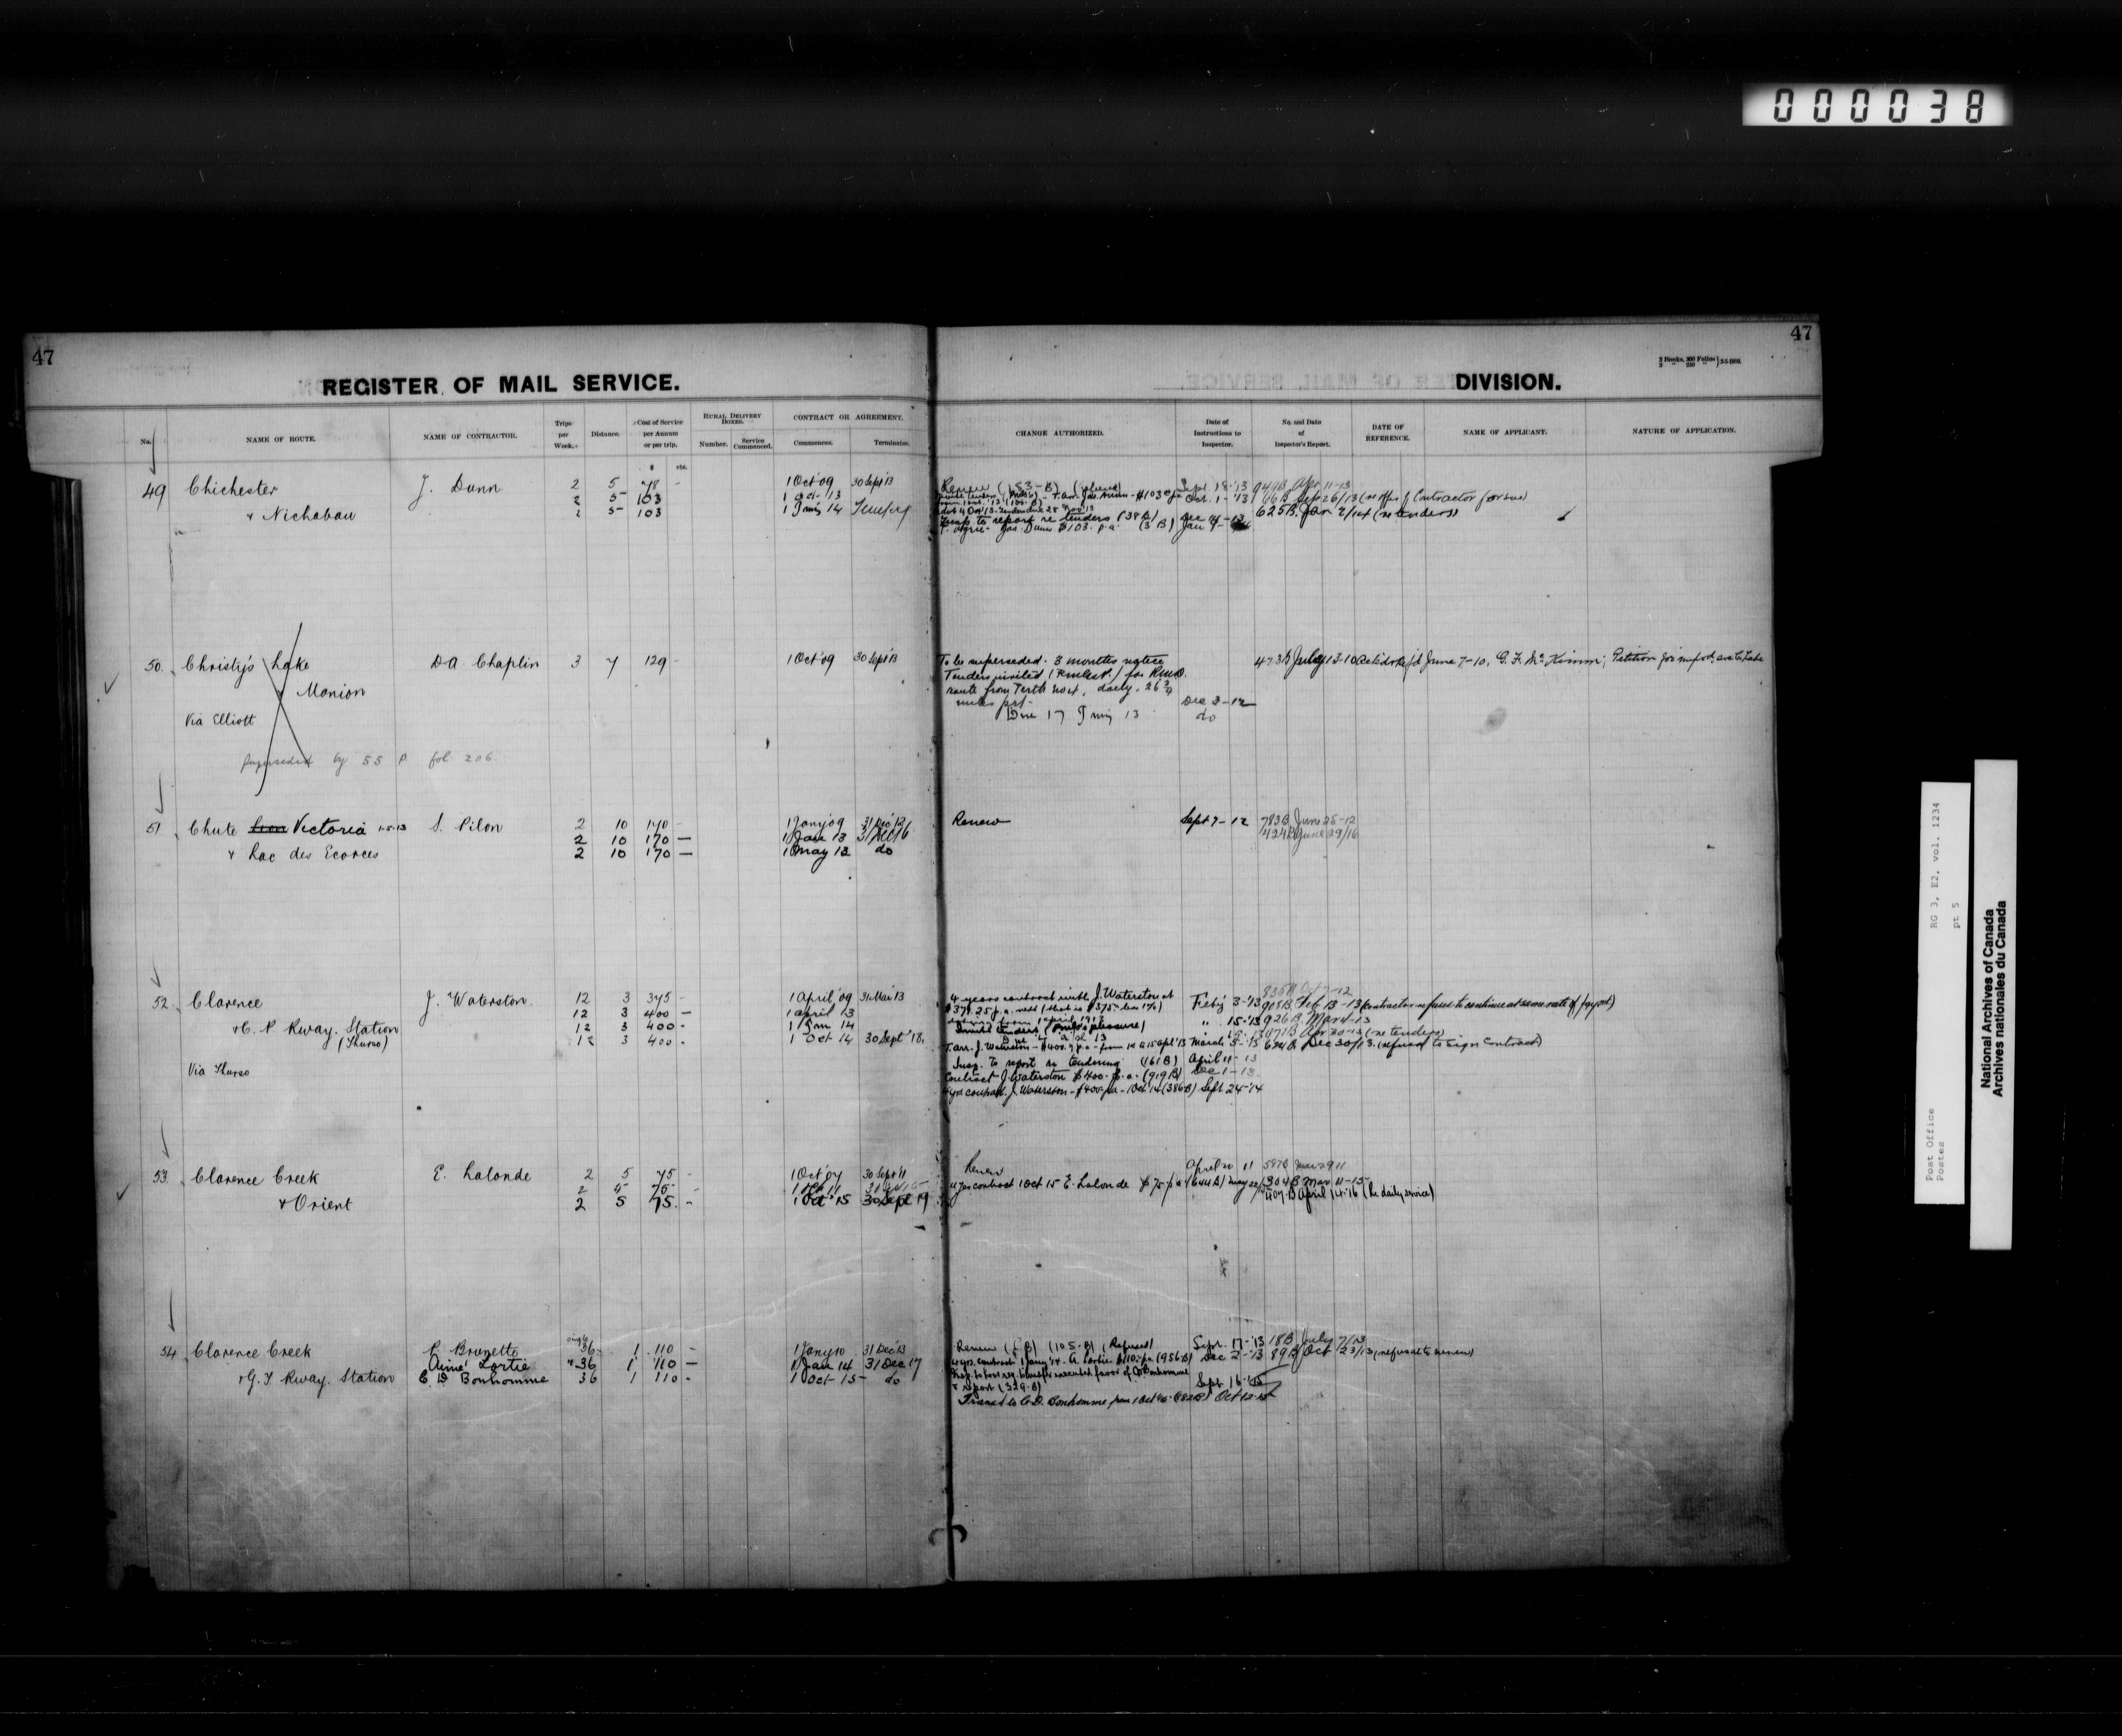 000038
47
47
3 Books, 300 Folios
3 " 250 " } 3-5-1909.
REGISTER OF MAIL SERVICE.
DIVISION.
No.
NAME OF ROUTE.
NAME OF CONTRACTOR.
Trips per Week.
Distance.
Cost of Service per Annum or per trip.
RURAL DELIVERY BOXES.
Number.
Service Commenced.
CONTRACT OR AGREEMENT.
Commences.
Terminates.
CHANGE AUTHORIZED.
Date of Instructions to Inspector.
No. and Date of Inspector's Report.
DATE OF REFERENCE.
NAME OF APPLICANT.
NATURE OF APPLICATION.
$ cts.
49 Chichester J. Dunn 2 5 78 - 1 Oct '09 30 Sept '13 Renew (153-B) Sept. 18-'13 Apr 11-13
2 5 103 1 Oct 13 Oct. 1-'13 66B Sep 26/13
& Nichabau 2 5 103 1 Jany 14
Insp to report re tenders (38B) Dec 14-13 625B Jan 2/14 (re tenders)
T. agree- Jas. Dunn $103. p.a. (3 B) Jan 7-
50. Christy's Lake D.A. Chaplin 3 7 129 - 1 Oct '09 30 Sept '13 To be superseded. 3 months notice 473B July 13-10 June 7-10, G. F. McKimm; Petition
& Manion Tenders invited for
route from Perth
Via Elliott miles Dec 3-12
Due 17 Jany 13 do
Superseded by 55 P. fol. 206.
51 Chute Victoria 1-5-13 S. Pilon 2 10 170 1 Jany '09 31 Dec '12 Renew Sept 7-12 783B June 25-12
2 10 170 - 1 Jan 13 31 Dec 16 424B June 29/16
& Lac des Ecorces 2 10 170 - 1 May 13 do
52. Clarence J. Waterston. 12 3 375 - 1 April '09 31 Mar '13 4 years contract with J. Waterston at Feby 3-'13 918B Feb 13-13 (Contractor refuses to continue at same rate of payt.)
12 3 400 - 1 April 13
& C. P. Rway. Station 12 3 400 - 1 Jan 14 15-'13 926B Mar 1-13
(Thurso) 12 3 400 - 1 Oct 14 30 Sept '18
T. arr. J. Waterston - $400. p.a. - from 1st April '13 March 5-13 624B Dec 30/13. (refusal to sign Contract)
Via Thurso Insp. to report re tendering (161B) April 11-13
Contract J Waterston $400. p.a. (919B) Dec 1-13.
4 yrs contract. J. Waterston - $400 pa - 1 Oct '14 (386B) Sept 24-'14
53. Clarence Creek E. Lalonde 2 5 75 - 1 Oct '07 30 Sept '11 Renew April 20 11 587B Mar 29 11
2 5 75 - 4 yrs contract 1 Oct 15 E. Lalonde $75 p.a. (644B) May 22/15 304B Mar 11-15
& Orient 2 5 75. - 1 Oct '15 30 Sept 19 407-B April 14-16 (Re daily service)
54 Clarence Creek P. Brunette single 36 1 110 - 1 Jany 10 31 Dec '13 Renew (5 B) (105-B) (Refused) Sept. 17-'13 18B July 7/13
Aimé Lortie " 36 1 110 - 1 Jan 14 31 Dec 17 4 yrs. contract 1 Jany '14. A. Lortie $110. pa (956B) Dec 2-'13 89B Oct 23/13 (refusal to renew)
& G. T Rway. Station C. D. Bonhomme 36 1 110 - 1 Oct-15- do Sept 16-15
& report (329-B)
Transf to C.D. Bonhomme from 1 Oct Oct 12-15
RG 3, E2, vol. 1234
pt 5
Post Office
Postes
National Archives of Canada
Archives nationales du Canada